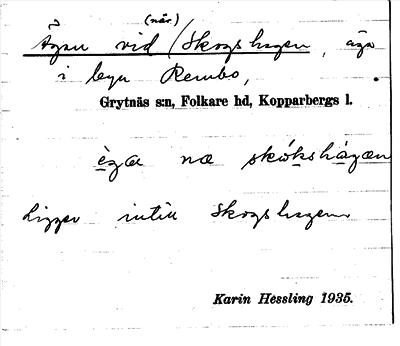 (när)
Ägan vid / Skogshagen, äga
i byn Rembo,
Grytnäs s:n, Folkare hd, Kopparbergs l.
èga næ skókshágæn
Ligger intill Skogshagen
Karin Hessling 1935.